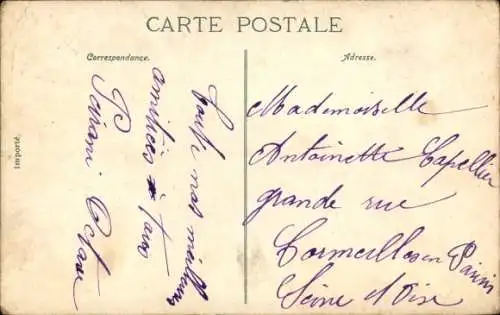 CARTE POSTALE
Correspondance.
Adresse.
Importé.
toute nos meilleures
amitiés à tous
Octave
Mademoiselle
Antoinette Capellier
grande rue
Cormeilles en Parisis
Seine et Oise